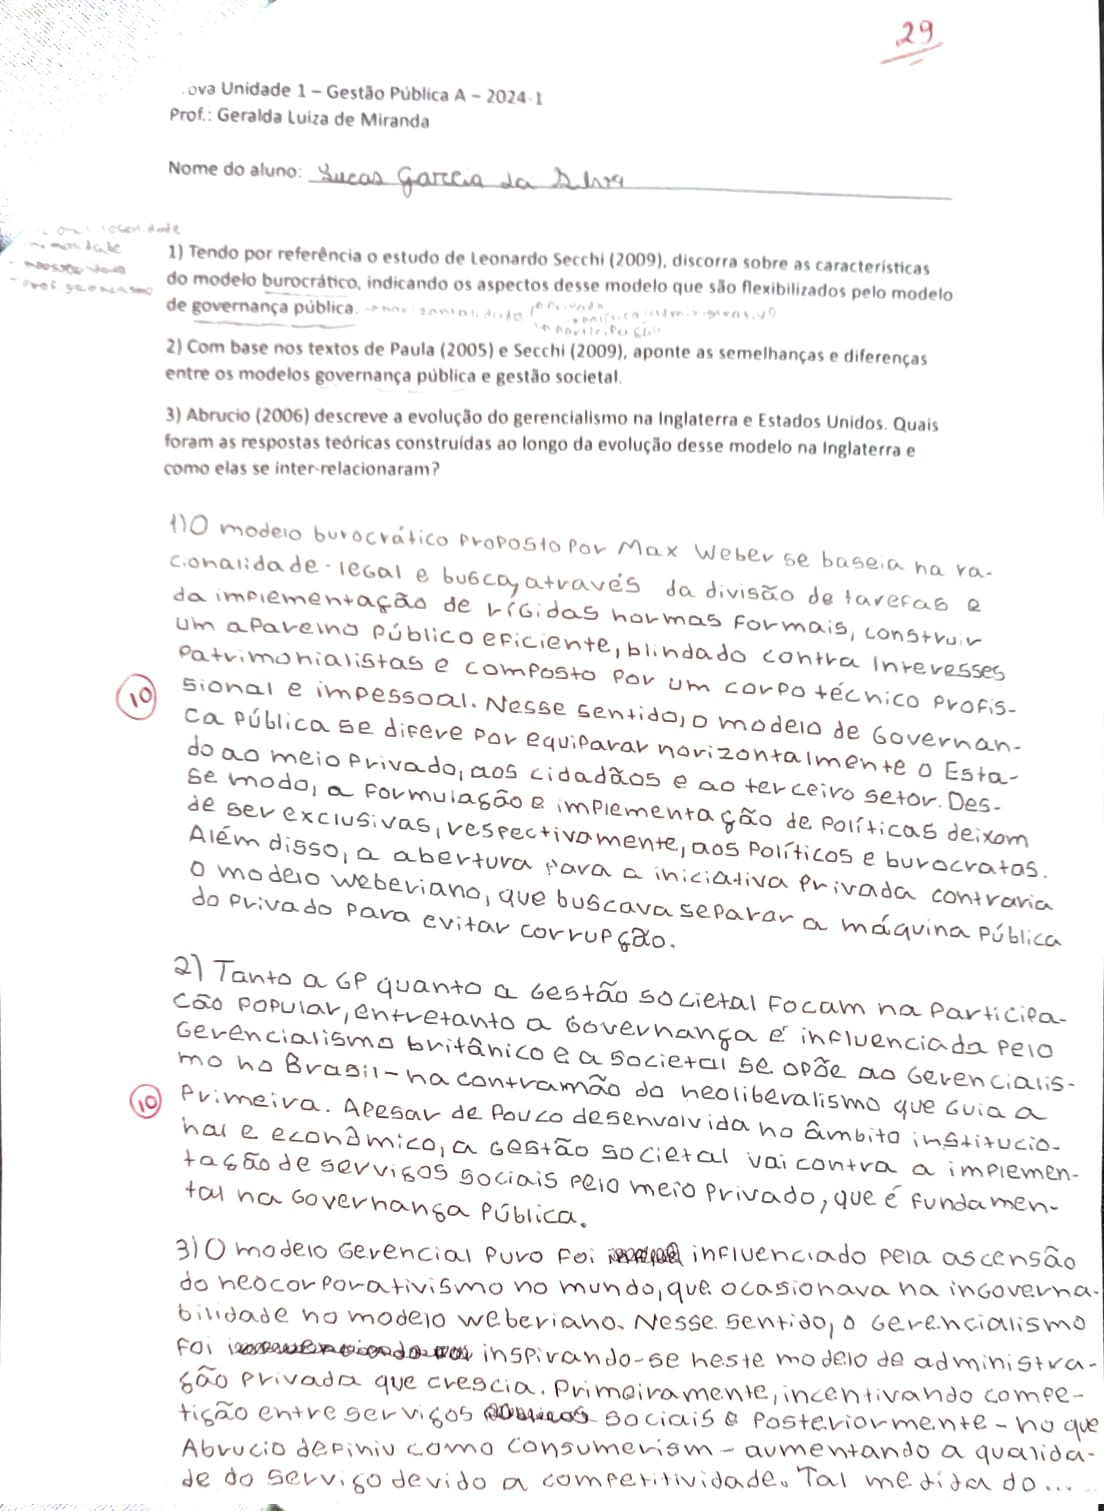 29
ova Unidade 1 – Gestão Pública A – 2024-1
Prof.: Geralda Luiza de Miranda
Nome do aluno: Lucas Garcia da Silva
1) Tendo por referência o estudo de Leonardo Secchi (2009), discorra sobre as características
do modelo burocrático, indicando os aspectos desse modelo que são flexibilizados pelo modelo
de governança pública.
2) Com base nos textos de Paula (2005) e Secchi (2009), aponte as semelhanças e diferenças
entre os modelos governança pública e gestão societal.
3) Abrucio (2006) descreve a evolução do gerencialismo na Inglaterra e Estados Unidos. Quais
foram as respostas teóricas construídas ao longo da evolução desse modelo na Inglaterra e
como elas se inter-relacionaram?
1) O modelo burocrático proposto por Max Weber se baseia na ra-
cionalidade-legal e busca, através da divisão de tarefas e
da implementação de rígidas normas formais, construir
um aparelho público eficiente, blindado contra interesses
patrimonialistas e composto por um corpo técnico profis-
10 sional e impessoal. Nesse sentido, o modelo de Governan-
ça pública se difere por equiparar horizontalmente o Esta-
do ao meio privado, aos cidadãos e ao terceiro setor. Des-
se modo, a formulação e implementação de políticas deixam
de ser exclusivas, respectivamente, aos políticos e burocratas.
Além disso, a abertura para a iniciativa privada contraria
o modelo weberiano, que buscava separar a máquina pública
do privado para evitar corrupção.
2) Tanto a GP quanto a Gestão societal focam na participa-
ção popular, entretanto a Governança é influenciada pelo
Gerencialismo britânico e a societal se opõe ao Gerencialis-
mo no Brasil – na contramão do neoliberalismo que guia a
10 primeira. Apesar de pouco desenvolvida no âmbito institucio-
nal e econômico, a gestão societal vai contra a implemen-
tação de serviços sociais pelo meio privado, que é fundamen-
tal na Governança Pública.
3) O modelo Gerencial Puro foi influenciado pela ascensão
do neocorporativismo no mundo, que ocasionava na ingoverna-
bilidade no modelo weberiano. Nesse sentido, o Gerencialismo
foi inspirando-se neste modelo de administra-
ção privada que crescia. Primeiramente, incentivando compe-
tição entre serviços sociais e posteriormente – no que
Abrucio definiu como consumerism – aumentando a qualida-
de do serviço devido a competitividade. Tal medida do...